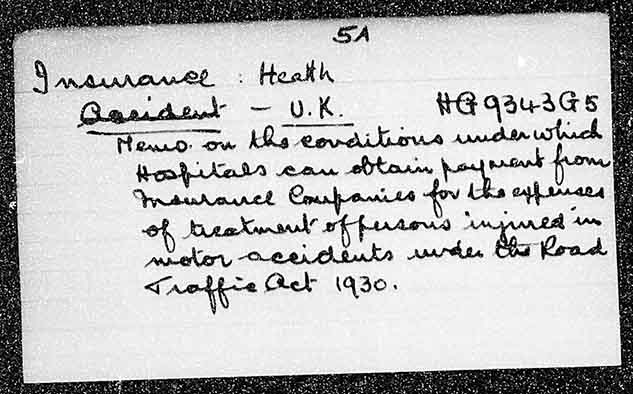 5A
Insurance : Health
Accident - U.K. HG9343G5
Memo. on the conditions under which
Hospitals can obtain payment from
Insurance Companies for the expenses
of treatment of persons injured in
motor accidents under the Road
Traffic Act 1930.